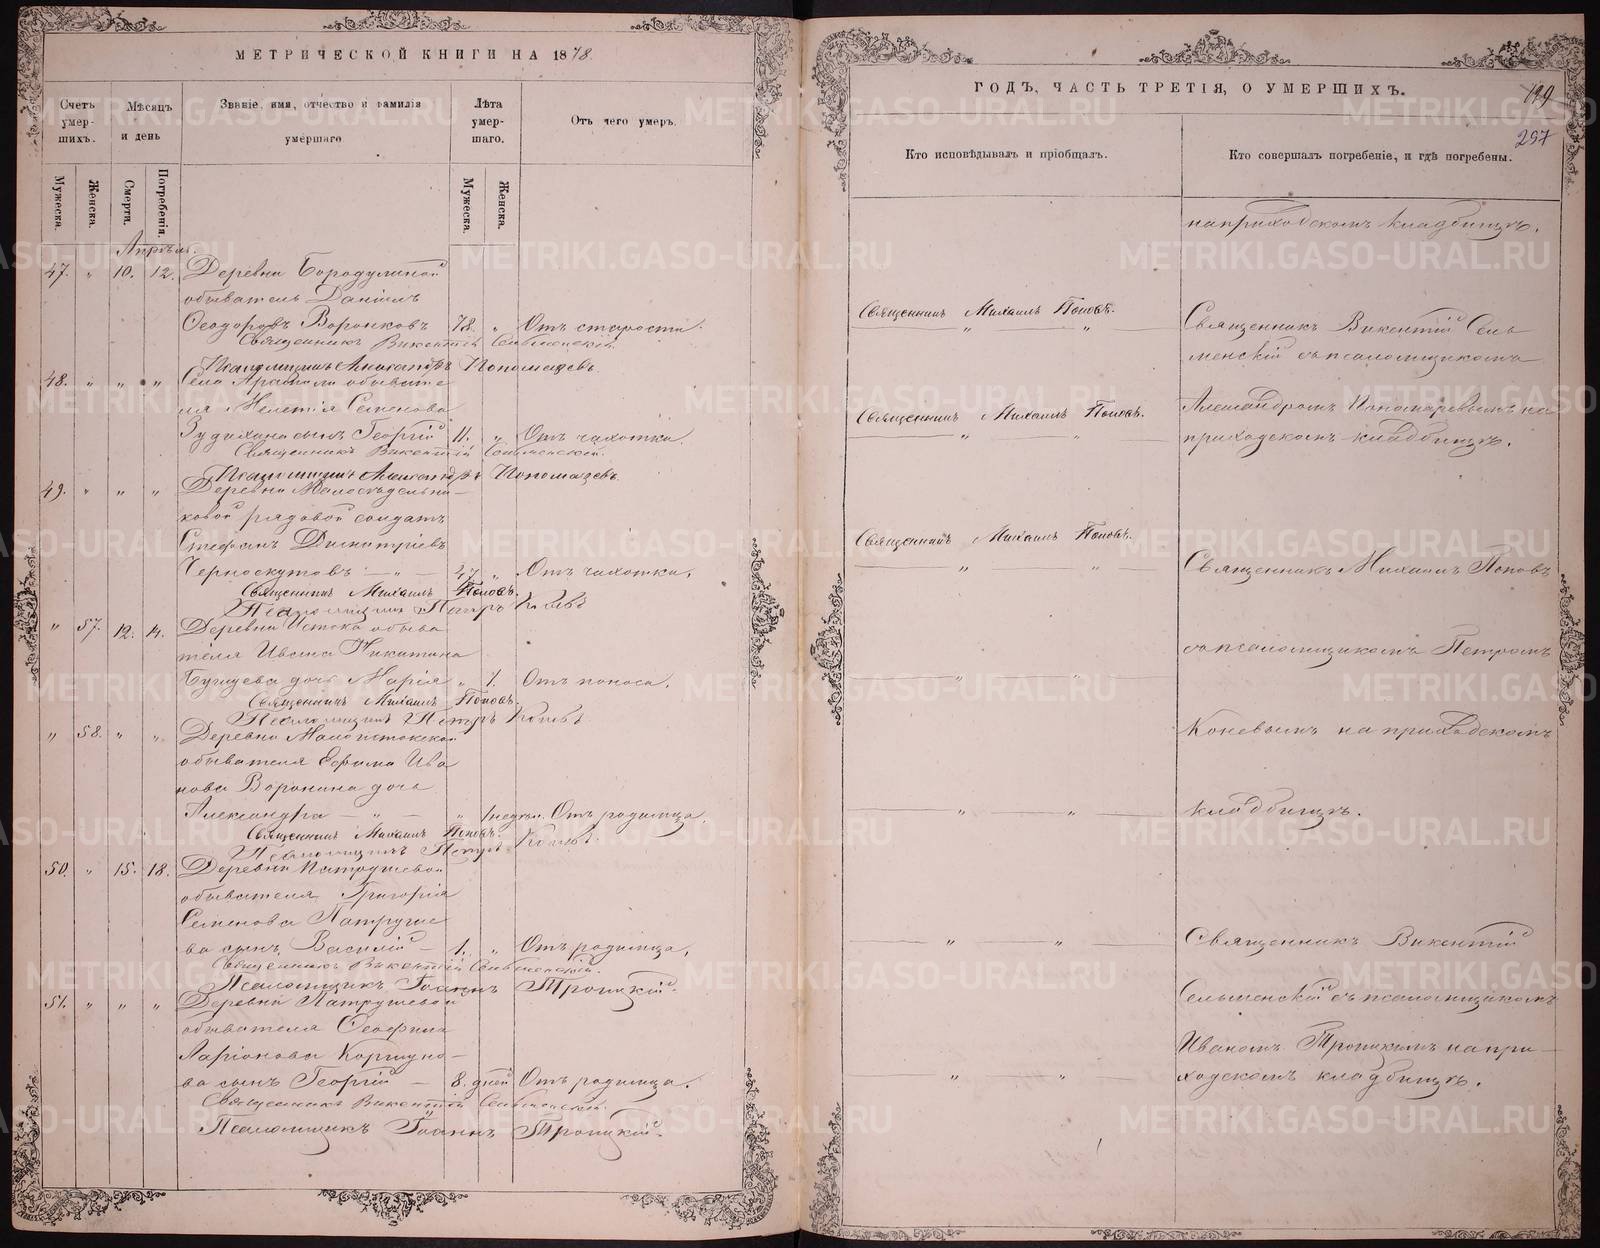 МЕТРИЧЕСКОЙ КНИГИ НА 1878.
Счетъ умер-шихъ.
Мѣсяцъ и день
Званіе, имя, отчество и фамилія умершаго
Лѣта умер-шаго.
Отъ чего умеръ.
Мужеска.
Женска.
Смерти.
Погребенія.
Мужеска.
Женска.
Апрѣль.
47. " 10. 12. Деревни Бородулиной
обыватель Даніилъ
Ѳеодоровъ Воронковъ 78. " Отъ старости.
Священникъ Викентій Сельменскій.
Псаломщикъ Александръ Пономаревъ
48. " " " Села Арамили обывате
ля Мелетія Семенова
Зудихина сынъ Георгій 11. " Отъ чахотки.
Священникъ Викентій Сельменскій.
Псаломщикъ Александръ Пономаревъ
49. " " " Деревни
ковой рядовой солдатъ
Стефанъ Димитріевъ
Черноскутовъ — " — 47. " Отъ чахотки.
Священникъ Михаилъ Поповъ.
Псаломщикъ Петръ Коневъ
" 57. 12. 14. Деревни Истока обыва
теля Ивана Никитина
дочь Марія " 7. Отъ поноса.
Священникъ Михаилъ Поповъ.
Псаломщикъ Петръ Коневъ
" 58. " " Деревни Малоистокской
обывателя Ефима Ива
нова Воронина дочь
Александра — " — " 1 недѣл. Отъ родимца.
Священникъ Михаилъ Поповъ.
Псаломщикъ Петръ Коневъ.
50. " 15. 18. Деревни Патрушевой
обывателя Григорія
Семенова Патруше
ва сынъ Василій — 1. " Отъ родимца.
Священникъ Викентій Сельменскій.
Псаломщикъ Іоаннъ Троицкій.
51. " " " Деревни Патрушевой
обывателя Ѳеофила
Ларіонова Коршуно—
ва сынъ Георгій — 8. дней Отъ родимца.
Священникъ Викентій Сельменскій.
Псаломщикъ Іоаннъ Троицкій.
ГОДЪ, ЧАСТЬ ТРЕТІЯ, О УМЕРШИХЪ.
199
257
Кто исповѣдывалъ и пріобщалъ.
Кто совершалъ погребеніе, и гдѣ погребены.
на приходскомъ кладбищѣ.
Священникъ Михаилъ Поповъ.
Священникъ Викентій Сель
менскій съ псаломщикомъ
Священникъ Михаилъ Поповъ.
Александромъ Пономаревымъ на
приходскомъ кладбищѣ.
Священникъ Михаилъ Поповъ.
Священникъ Михаилъ Поповъ
съ псаломщикомъ Петромъ
Коневымъ на приходскомъ
кладбищѣ.
Священникъ Викентій
Сельменскій съ псаломщикомъ
Иваномъ Троицкимъ на при—
ходскомъ кладбищѣ.
METRIKI.GASO-URAL.RU